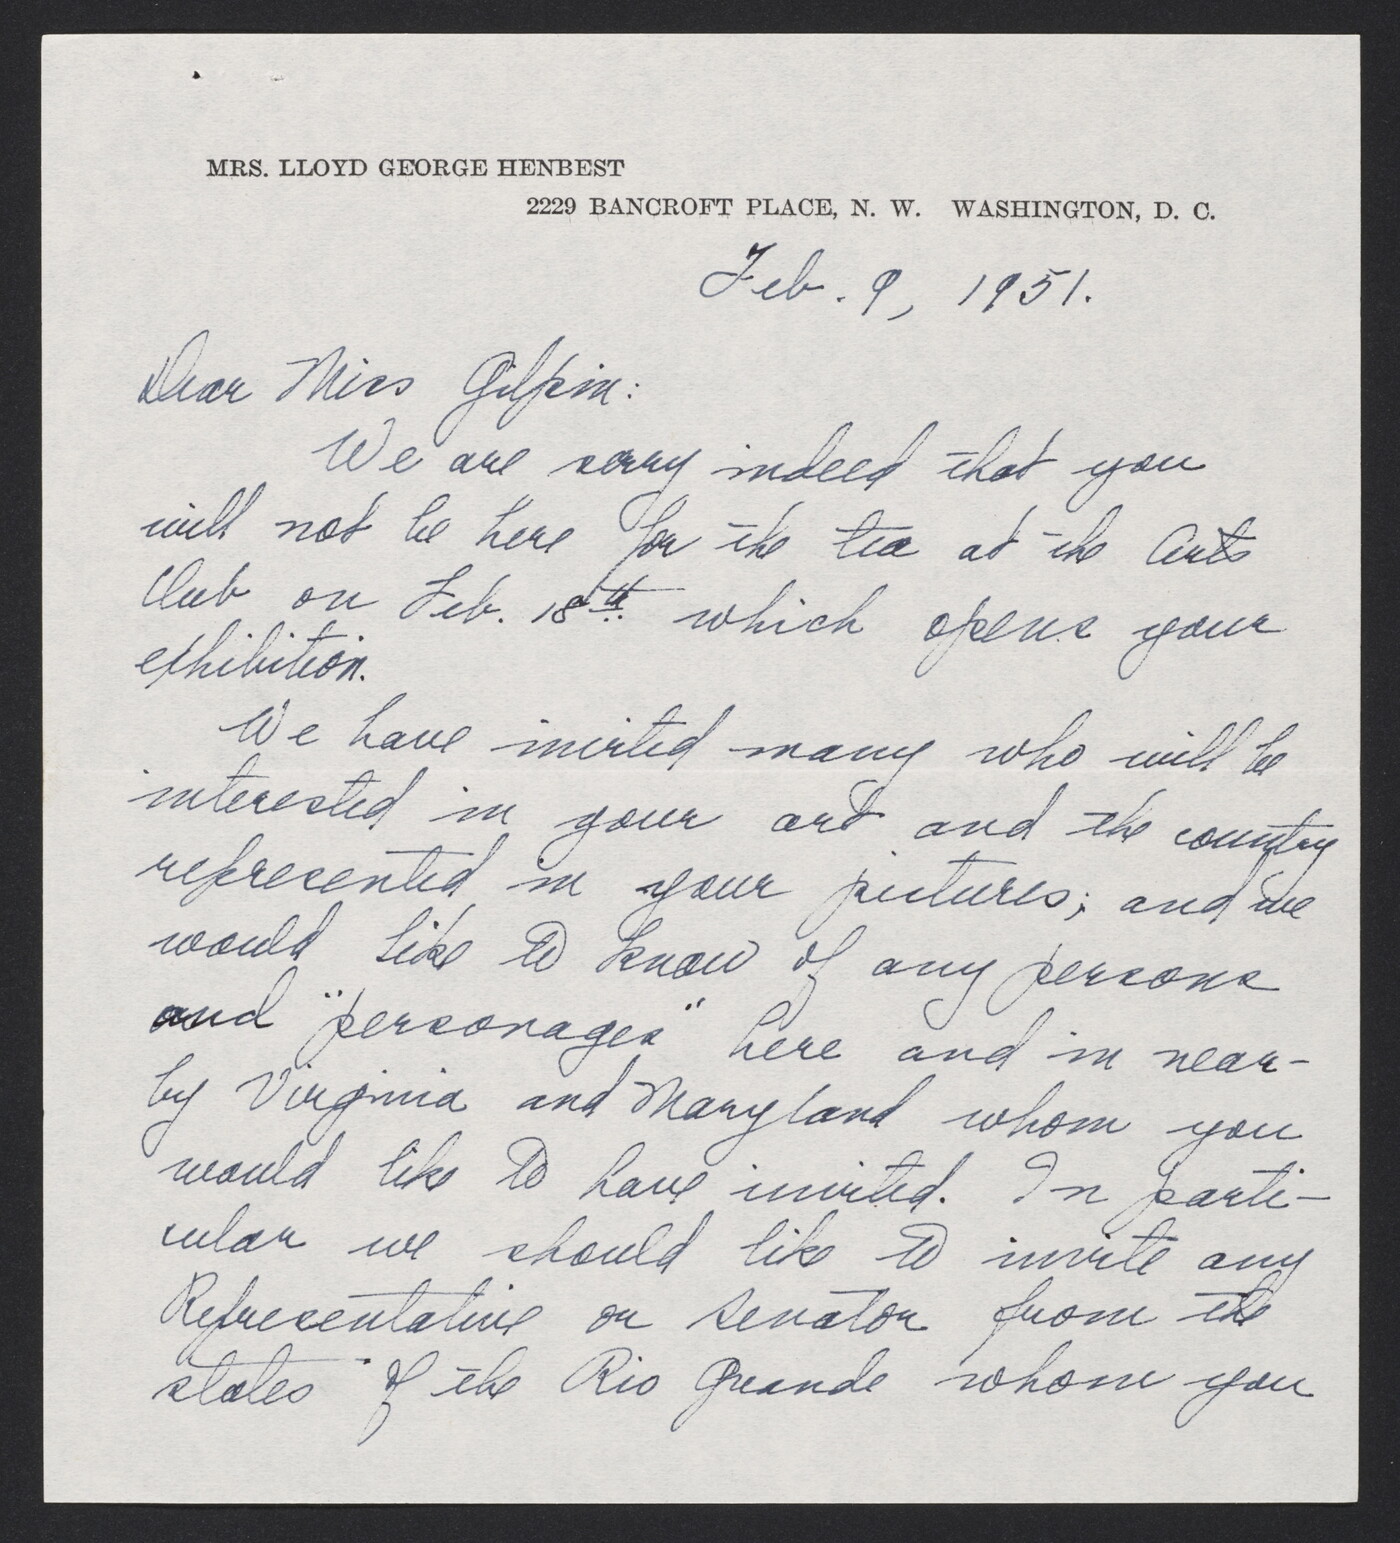 MRS. LLOYD GEORGE HENBEST
2229 BANCROFT PLACE, N. W. WASHINGTON, D. C.
Feb. 9, 1951.
Dear Miss Gilpin:
We are sorry indeed that you
will not be here for the tea at the Arts
Club on Feb. 18th which opens your
exhibition.
We have invited many who will be
interested in your art and the country
represented in your pictures; and we
would like to know of any persons
and "personages" here and in near-
by Virginia and Maryland whom you
would like to have invited. In parti-
cular we should like to invite any
Representative or Senator from the
states of the Rio Grande whom you